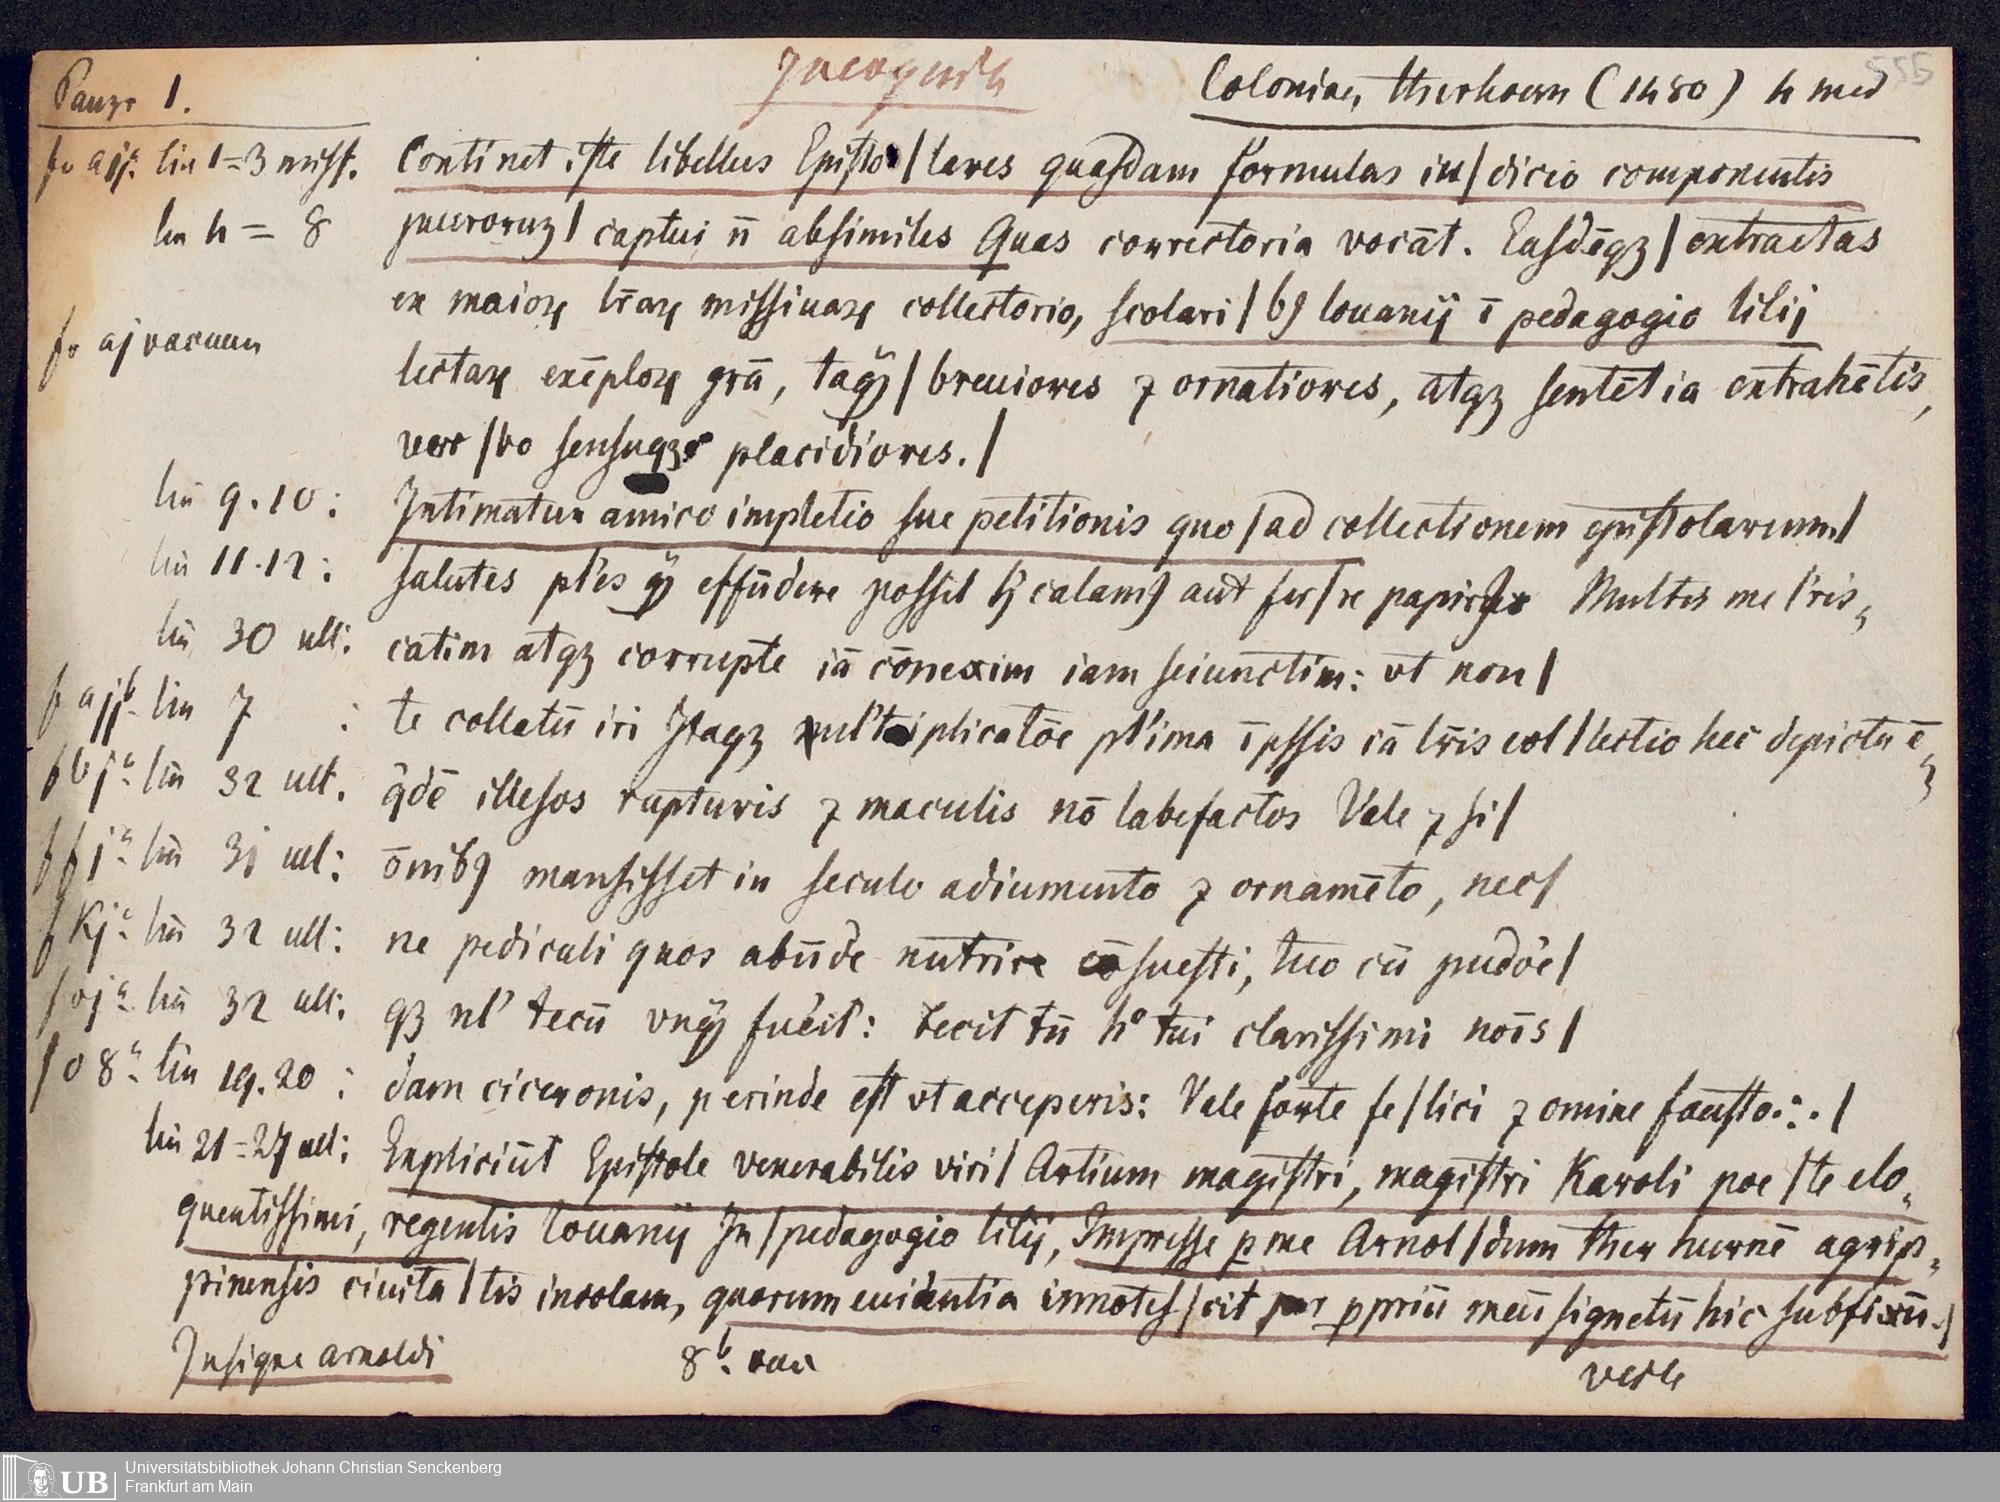 555
Panzr 1.
Coloniae, therhoern (1480) 4 med
fo aij a. lin 1=3 miss. Continet iste libellus Episto/lares quasdam formulas iu/dicio componentis
lin 4 = 8 pueroruꝫ/ captui n̄ absimiles Quas correctoria vocāt. Easdēqꝫ/ extractas
ex maioꝝ lr̄aꝝ missiuaꝝ collectorio, scolari/bꝰ louanij ī pedagogio lilij
fo aj vacuum
lectaꝝ exēploꝝ grā, taqꝫ/ breuiores ⁊ ornatiores, atqꝫ sentētia extrahētis,
ver/bo sensuqꝫ placidiores./
lin 9.10: Intimatur amico impletio sue petitionis quo/ad collectionem epistolarum/
lin 11.12: salutes pl'es qꝫ effūdere posset calamꝰ aut fer/re papirꝰ Multos me/ris=
lin 30 ult: catim atqꝫ corrupte iā cōnexim iam seiunctim: vt non/
f aijb. lin 7 : te collatū iri Itaqꝫ mul'tiplicatōe pl'ima īpssis iā lr̄is col/lectio hec depicta ē
f bja. lin 32 ult. q̄dē illesos rapturis ⁊ maculis nō labefactos Vale ⁊ si/
f fja. lin 31 ul: ōnibꝰ mansisset in seculo adiumento ⁊ ornamēto, nec/
f Kja. lin 32 ult: ne pediculi quos abūde nutrire cōsuesti, tuo cū pudōe/
f oja. lin 32 ult: qꝫ nl' tecū vnqꝫ fuerit: tecit tū ho tui clarissimi nois/
f o8a. lin 19.20 : dam ciceronis, perinde est vt acceperis: Vale forte fe/lici ⁊ omine fausto.:./
lin 21=27 ult: Expliciūt Epistole venerabilis viri/ Artium magistri, magistri Karoli poe/te elo=
quentissimi, regentis louanij In/pedagogio lilij, Impresse ꝑ me Arnol/dum ther hurnē agrip=
pinensis ciuita/tis incolam, quorum euidentia innotes/cit ꝓpriū meū signetū hic subfixū./
Insigne arnoldi 8b. vac verte
UB Universitätsbibliothek Johann Christian Senckenberg
Frankfurt am Main